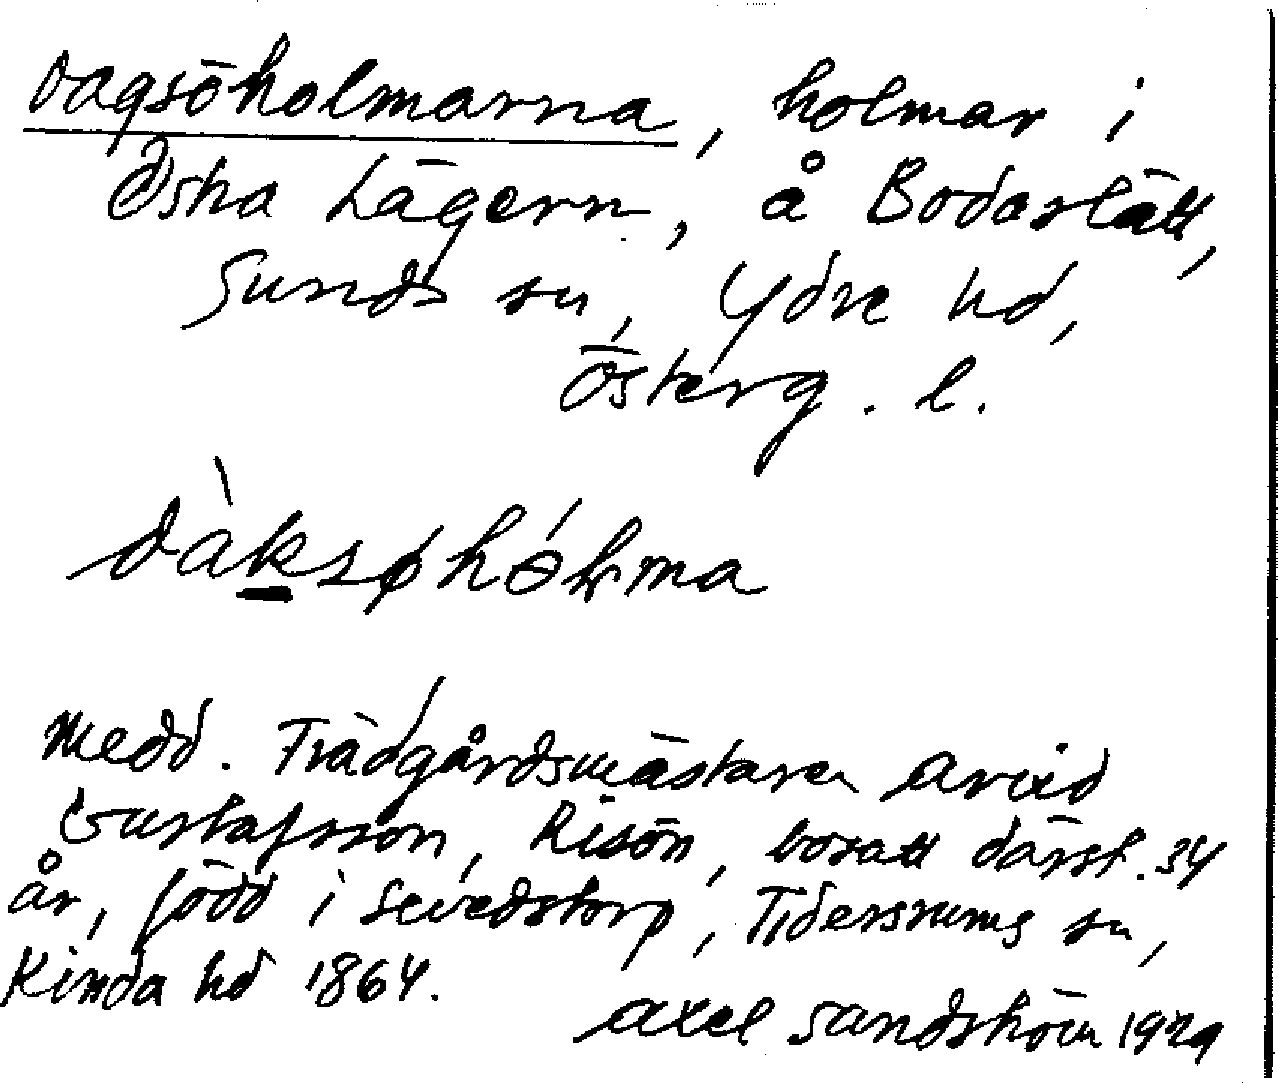 Dagsöholmarna, holmar i
Östra Lägern, å Bodaslätt,
Sunds sn, Ydre hd,
Österg. l.
dàksøhólma
Medd. Trädgårdsmästaren Arvid
Gustafsson, Risön, bosatt därst. 34
år, född i Sevedstorp, Tidersrums sn,
Kinda hd 1864.
Axel Sandström 1929